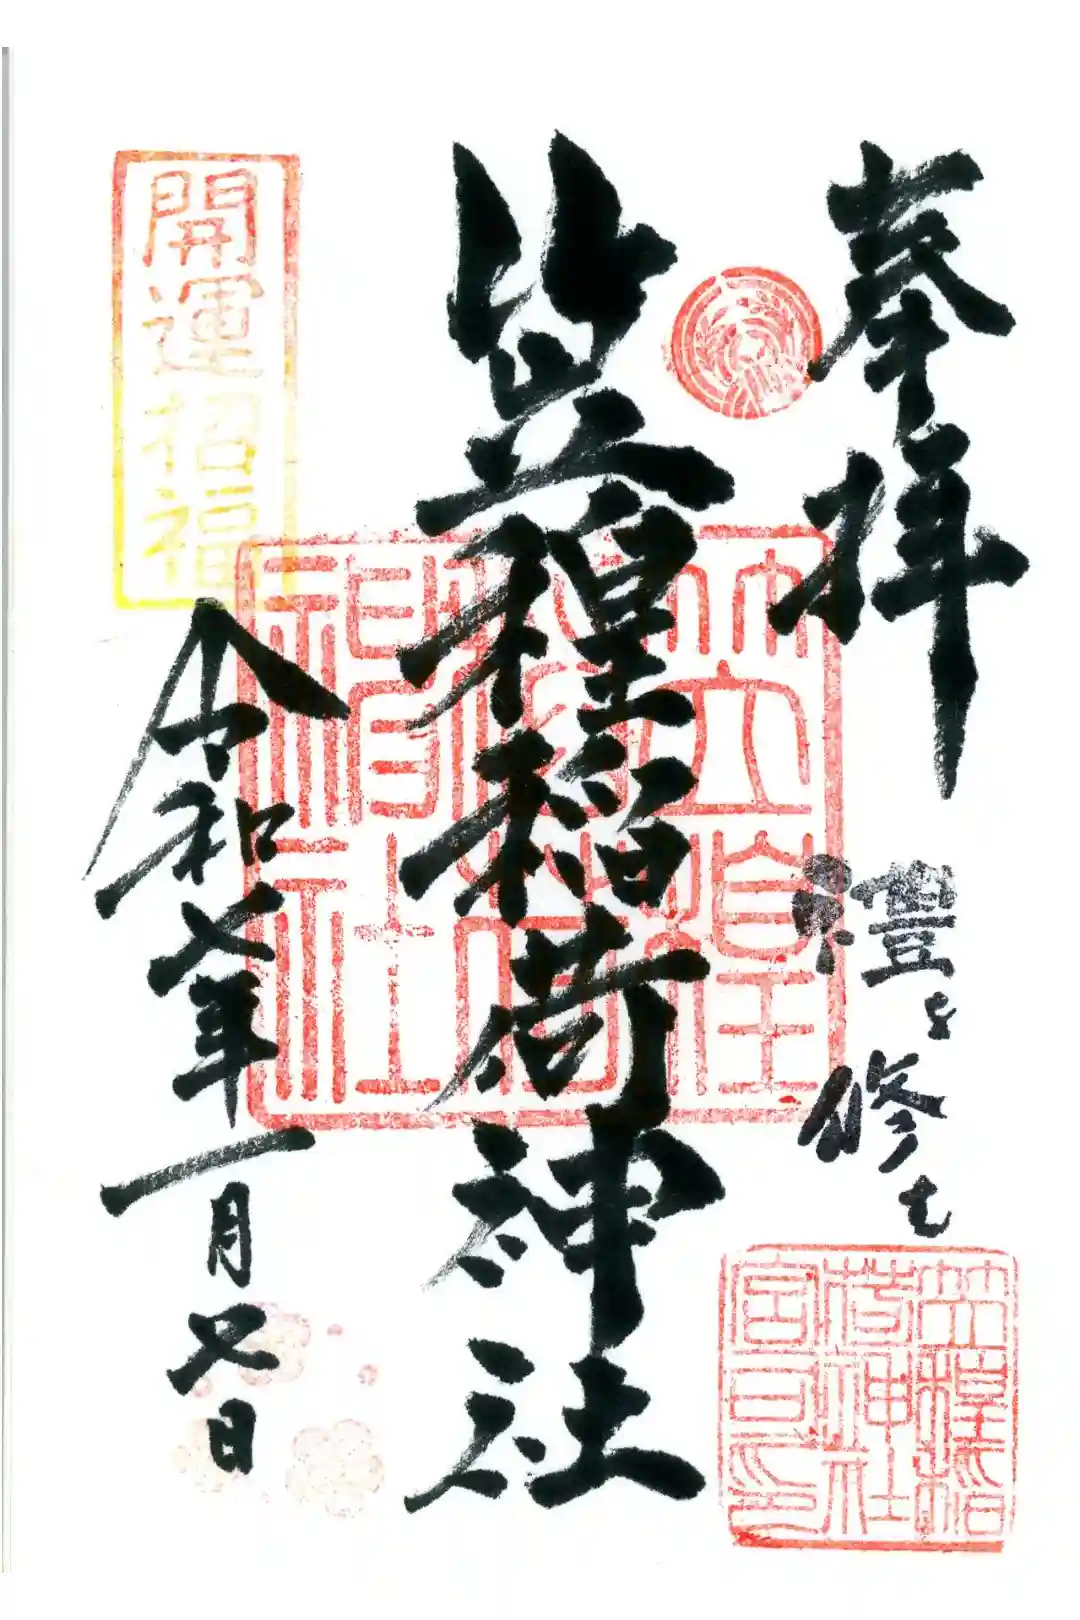 奉拝
禮を修む
笠䅣稲荷神社
令和七年一月 日
開運招福
笠䅣
稲荷
神社
笠䅣稲
荷神社
宮司印